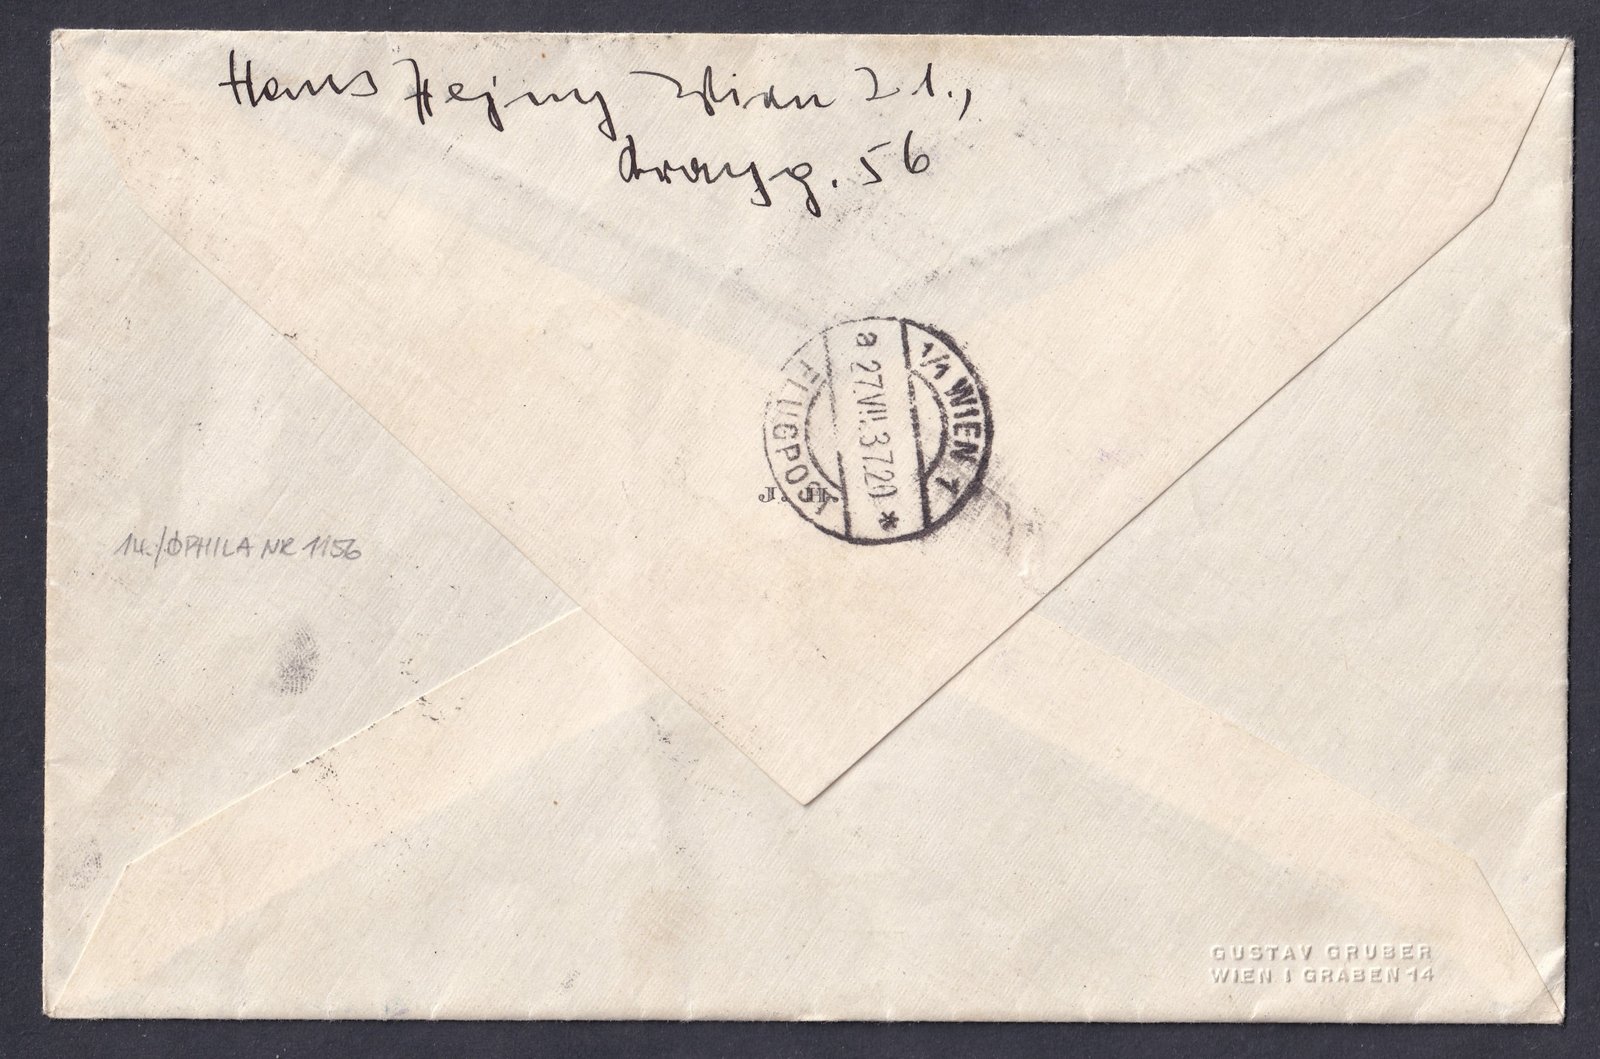 Hans Hejny Wien 21.,
56
1/1 WIEN 1
a 27.VII.37.20 *
FLUGPOST
J. H.
14./ÖPHILA NR 1156
GUSTAV GRUBER
WIEN I GRABEN 14